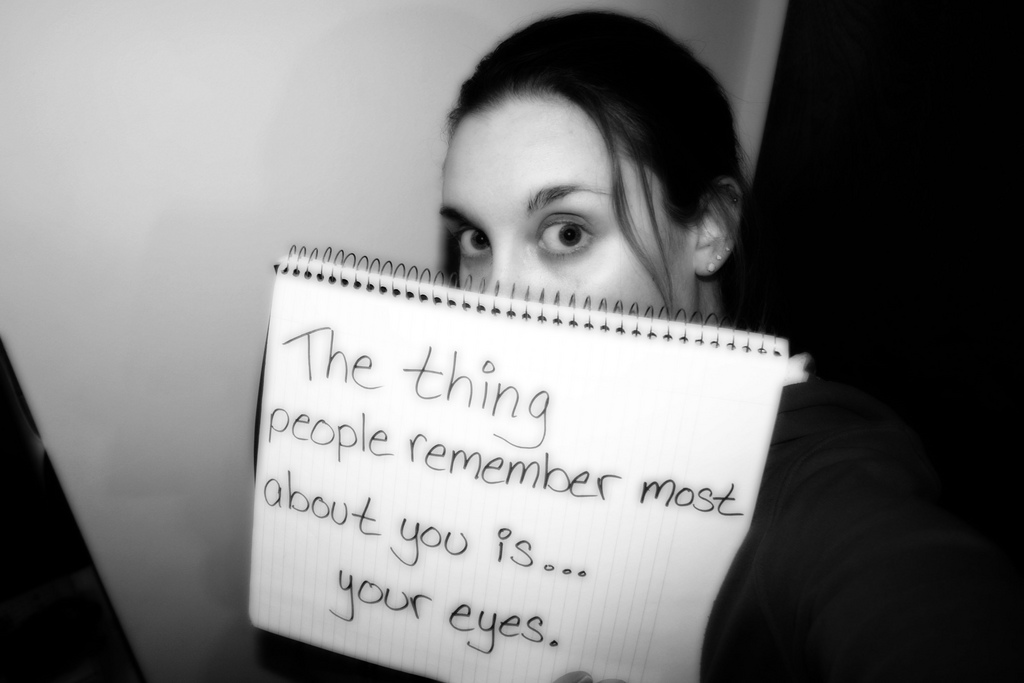 The thing
people remember most
about you is...
your eyes.